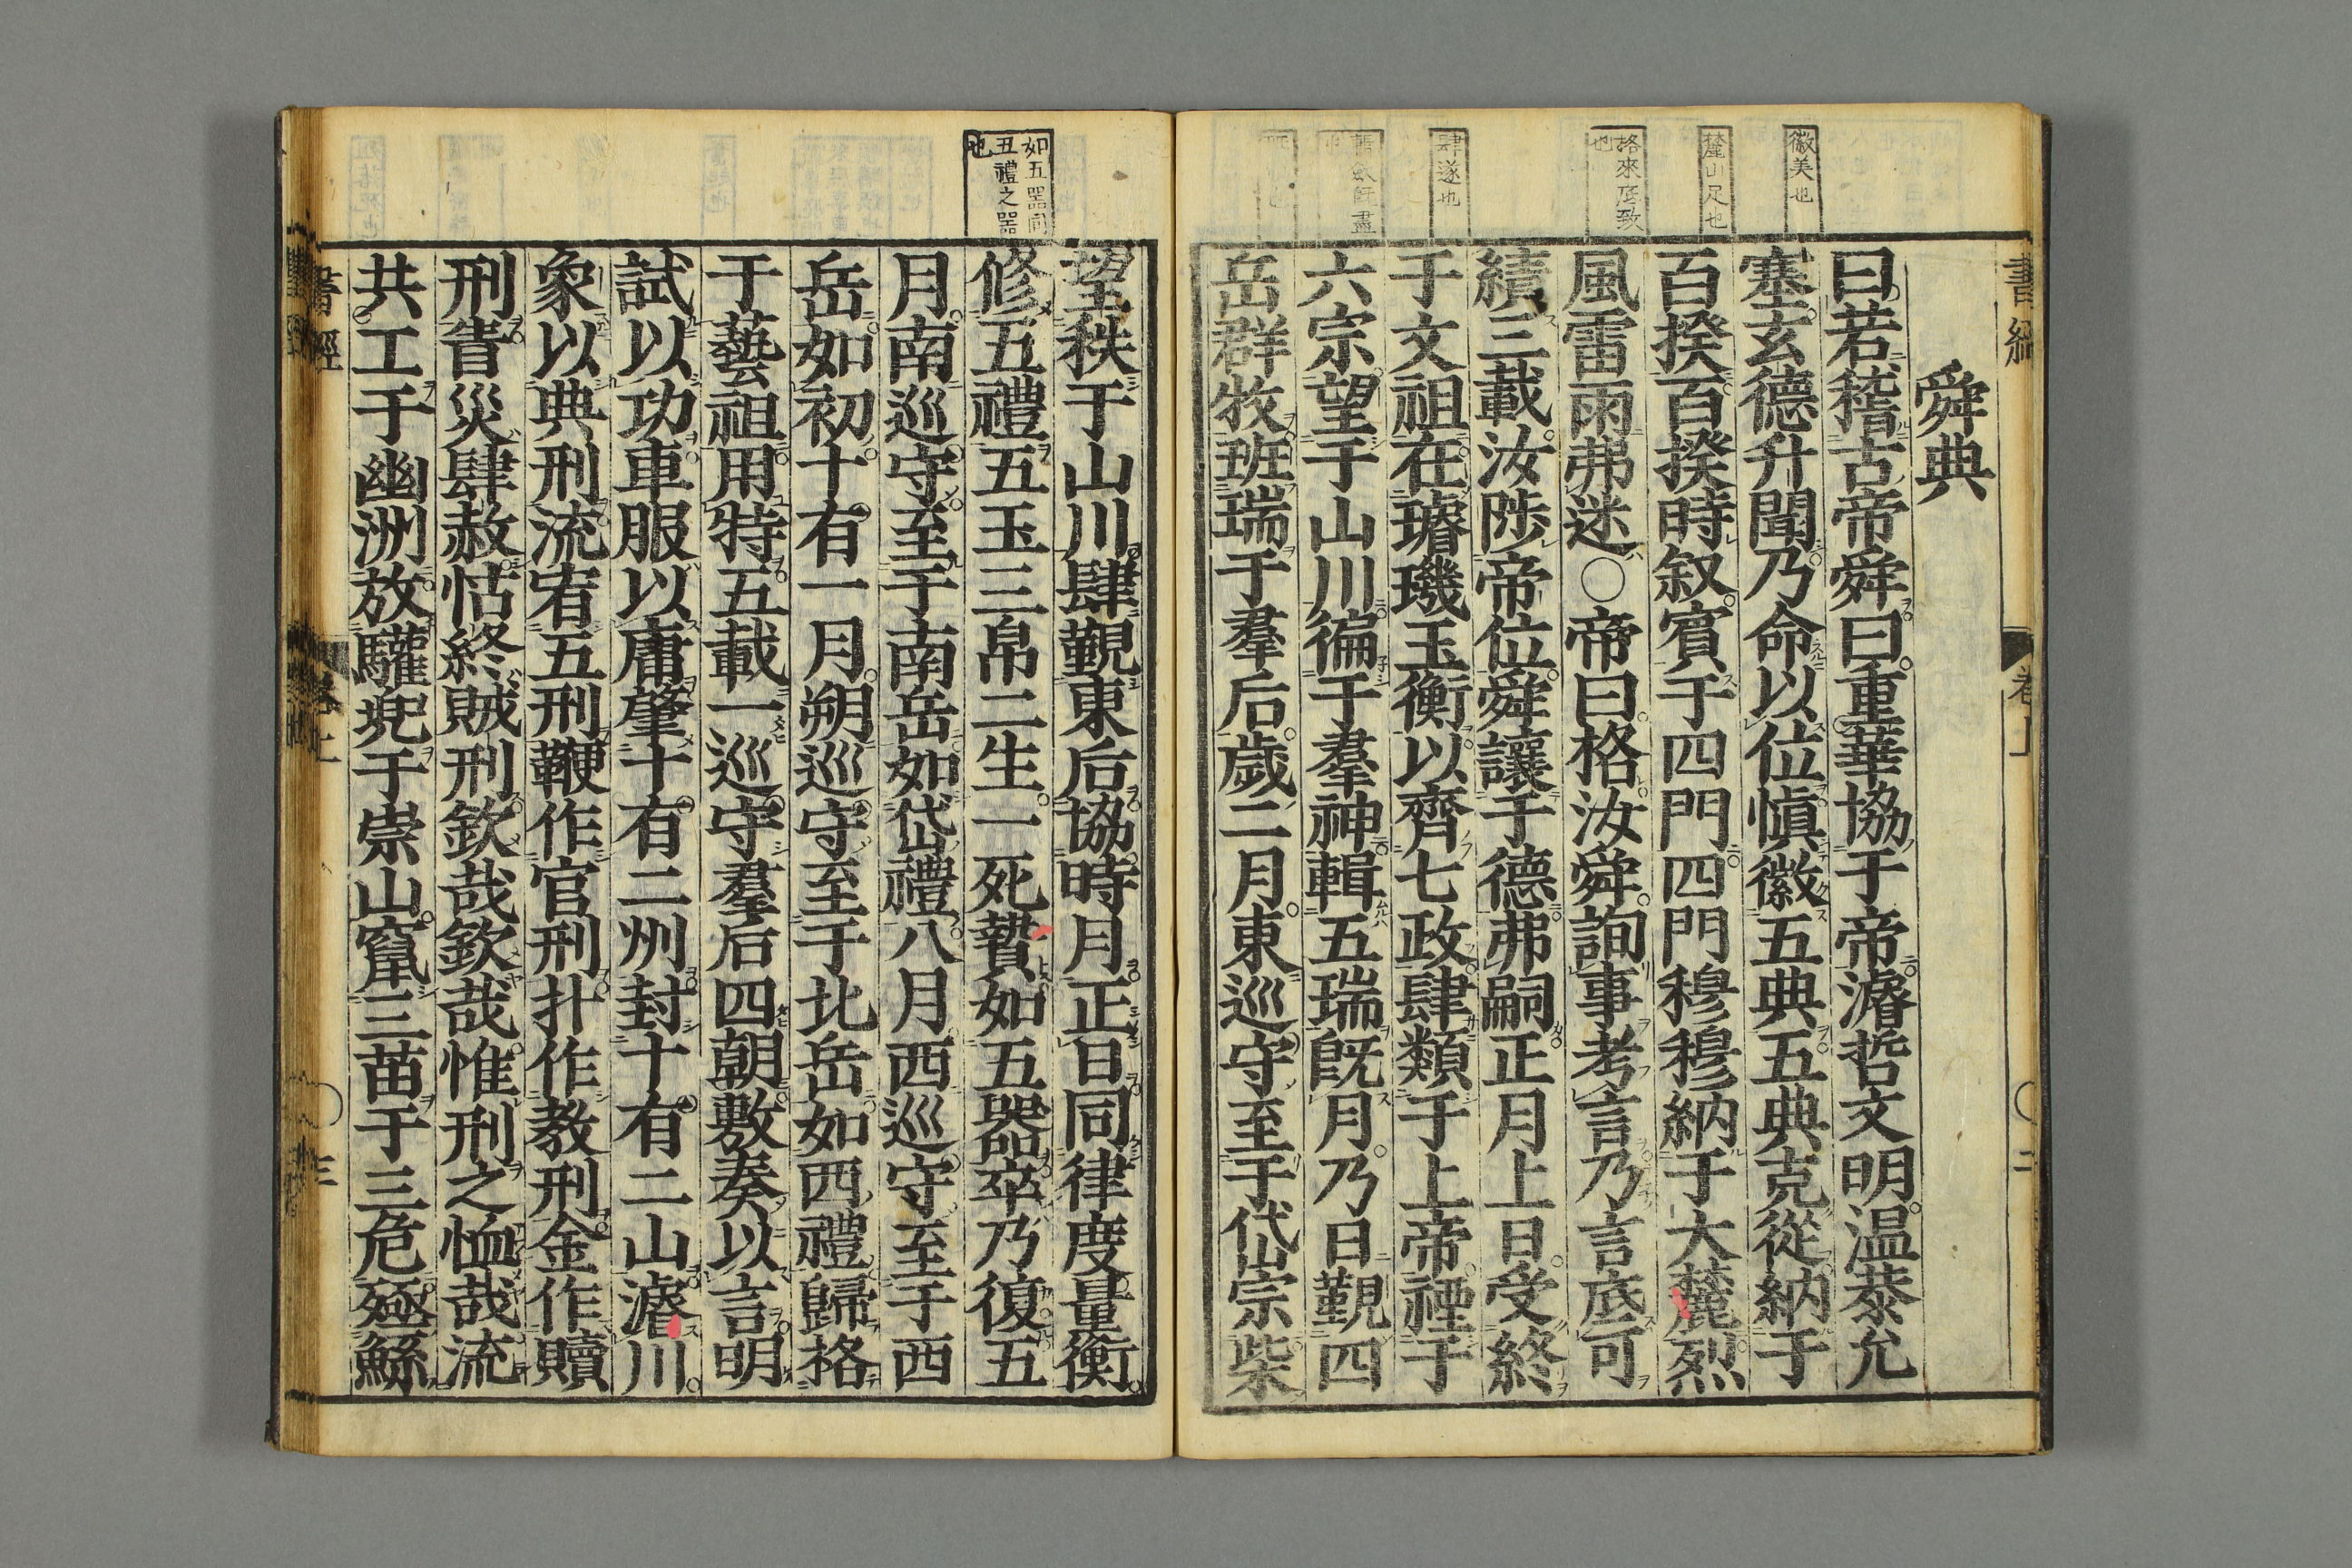 徽美也
麓山足也
格來底致
也
肆遂也
舜典
曰若稽古帝舜曰重華協于帝濬哲文明温恭允
塞玄德升聞乃命以位愼徽五典五典克從納于
百揆百揆時叙賓于四門四門穆穆納于大麓烈
風雷雨弗迷〇帝曰格汝舜詢事考言乃言底可
績三載汝陟帝位舜讓于德弗嗣正月上日受終
于文祖在璿璣玉衡以齊七政肆類于上帝禋于
六宗望于山川徧于羣神輯五瑞既月乃日覲四
岳群牧班瑞于羣后歲二月東巡守至于岱宗柴
如五器同
五禮之器
也
望秩于山川肆覲東后協時月正日同律度量衡
修五禮五玉三帛二生一死贄如五器卒乃復五
月南巡守至于南岳如岱禮八月西巡守至于西
岳如初十有一月朔巡守至于北岳如西禮歸格
于藝祖用特五載一巡守羣后四朝敷奏以言明
試以功車服以庸肇十有二州封十有二山濬川
象以典刑流宥五刑鞭作官刑扑作教刑金作贖
刑眚災肆赦怙終賊刑欽哉欽哉惟刑之恤哉流
共工于幽洲放驩兜于崇山竄三苗于三危殛鯀
書經